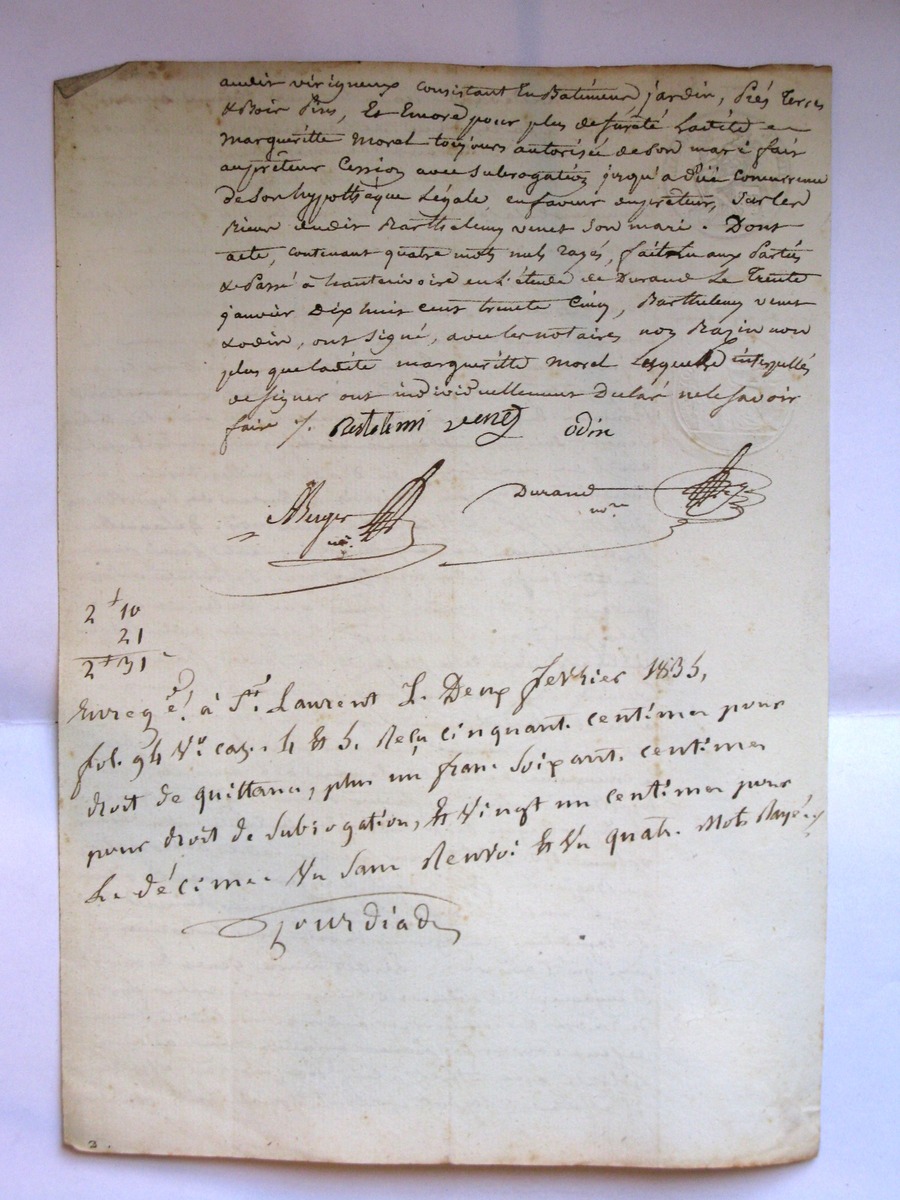 audit virigneux Consistant En Batiment, jardin, Prés Terres
& Bois Pins, Et Encore pour plus de sûreté Ladite
Margueritte Morel toujours autorisée de son mari fait
au prêteur Cession avec subrogation jusqu'a dûe Concurrence
de son hypothèque Légale, en faveur du prêteur, sur les
Biens dudit Barthelemy venet son mari. Dont
acte, contenant quatre mots nuls rayés, fait & lu aux Parties
& Passé à hauterivoire en L'étude de Durand Le Trente
janvier Dix huit cent trente Cinq, Barthelemy venet
& odin, ont signé, avec les notaires non Bazin non
plus que ladite margueritte morel Lesquels interpellés
de signer ont individuellement Déclaré ne le savoir
faire /.
Bertelemi venet odin
ABerger
nre.
Durand
nore
2f 10
21
2f 31
Enregé. à St. Laurent L. Deux février 1835,
fol. 94 Vo. cas. 4 & 5. Reçu cinquant. centimes pour
droit de quittance, plus un franc soixant. centimes
pour droit de subrogation, & vingt un centimes pour
Le décime. Vu sans Renvoi & Vu quatr. Mots Rayés
3.